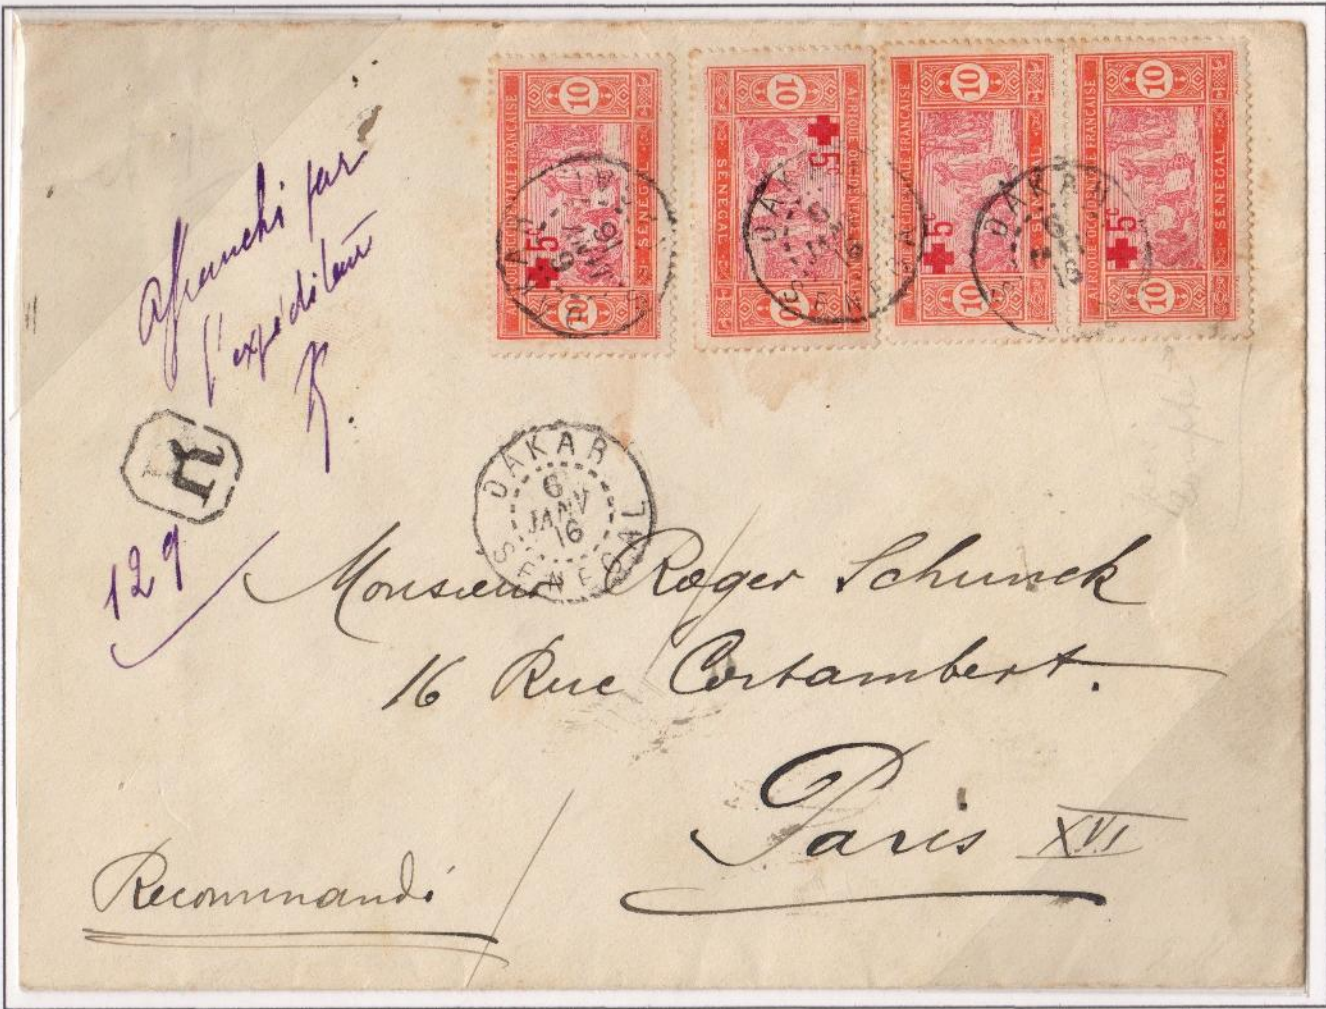 10 10 10 10
AFRIQUE OCCIDENTALE FRANÇAISE
SÉNÉGAL
+ 5c
10
AFRIQUE OCCIDENTALE FRANÇAISE
SÉNÉGAL
+ 5c
10
AFRIQUE OCCIDENTALE FRANÇAISE
SÉNÉGAL
+ 5c
10
AFRIQUE OCCIDENTALE FRANÇAISE
SÉNÉGAL
+ 5c
10
DAKAR
6
JANV
16
SENEGAL
DAKAR
6
JANV
16
SENEGAL
DAKAR
6
16
Affranchi par
l'expéditeur
R.
R
129
DAKAR
6
JANV
16
SENEGAL
Monsieur Roger Schunck
16 Rue Cortambert.
Paris XVI
Recommandé